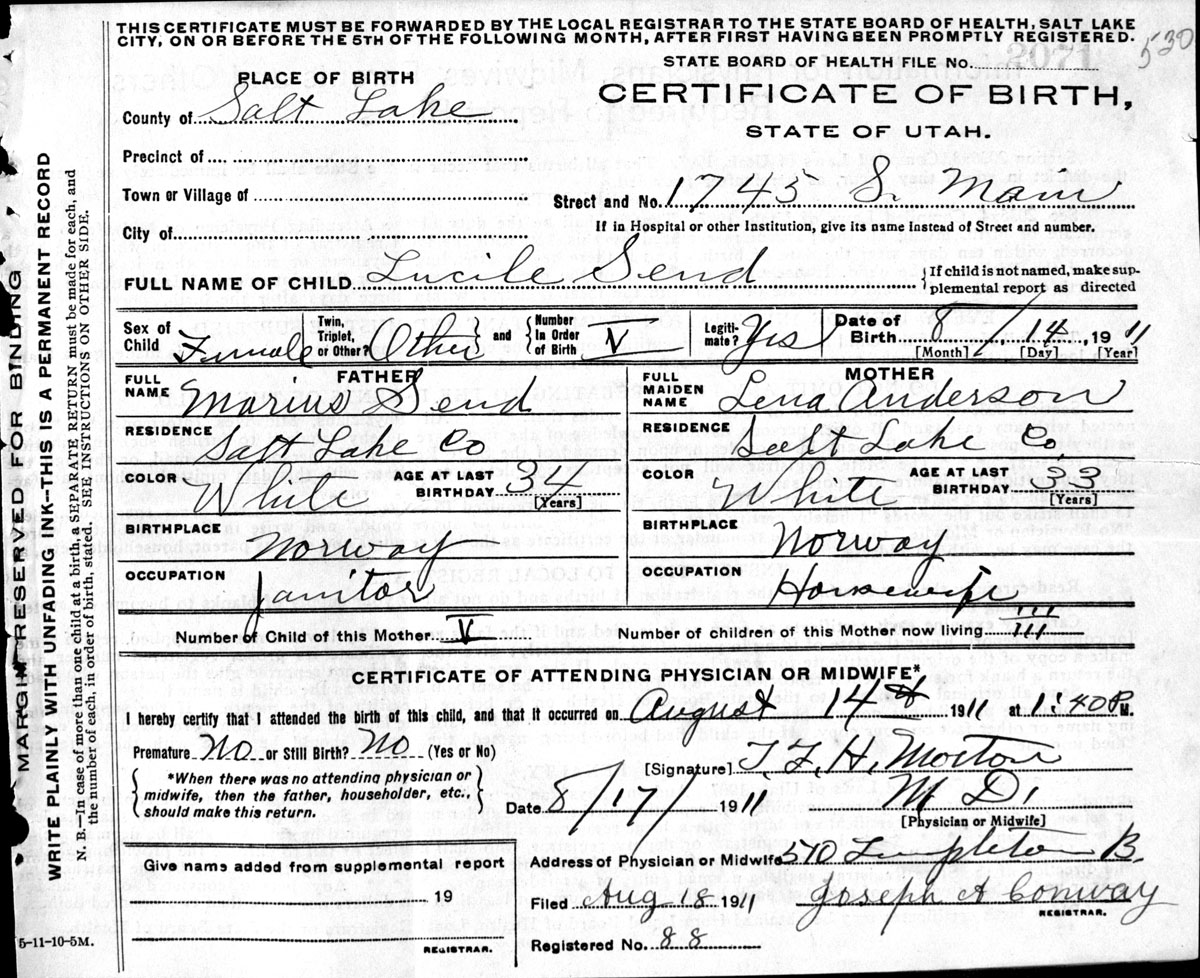 THIS CERTIFICATE MUST BE FORWARDED BY THE LOCAL REGISTRAR TO THE STATE BOARD OF HEALTH, SALT LAKE
CITY, ON OR BEFORE THE 5TH OF THE FOLLOWING MONTH, AFTER FIRST HAVING BEEN PROMPTLY REGISTERED.
530
STATE BOARD OF HEALTH FILE No. 2071
PLACE OF BIRTH
CERTIFICATE OF BIRTH,
STATE OF UTAH.
County of Salt Lake
Precinct of
Town or Village of
Street and No. 1745 S. Main
City of
If in Hospital or other Institution, give its name Instead of Street and number.
FULL NAME OF CHILD Lucile Send
{If child is not named, make sup-
plemental report as directed
Sex of Child Female Twin, Triplet, or Other? Other and Number In Order of Birth V Legiti-mate? Yes Date of Birth 8/14, 1911
[Month] [Day] [Year]
FATHER MOTHER
FULL NAME Marius Send FULL MAIDEN NAME Lena Anderson
RESIDENCE Salt Lake Co RESIDENCE Salt Lake Co.
COLOR White AGE AT LAST BIRTHDAY 34 [Years] COLOR White AGE AT LAST BIRTHDAY 33 [Years]
BIRTHPLACE Norway BIRTHPLACE Norway
OCCUPATION Janitor OCCUPATION Housewife
Number of Child of this Mother V Number of children of this Mother now living III
CERTIFICATE OF ATTENDING PHYSICIAN OR MIDWIFE*
I hereby certify that I attended the birth of this child, and that it occurred on August 14 1911 at 1:40 P M.
Premature No or Still Birth? No (Yes or No)
[Signature] T. F. H. Morton
M D.
[Physician or Midwife]
*When there was no attending physician or
midwife, then the father, householder, etc.,
should make this return.
Date 8/17/ 1911
Give name added from supplemental report
19
REGISTRAR.
Address of Physician or Midwife 510 Templeton B.
Filed Aug 18 1911 Joseph A Conway
REGISTRAR.
Registered No. 88
5-11-10-5M.
MARGIN RESERVED FOR BINDING
WRITE PLAINLY WITH UNFADING INK--THIS IS A PERMANENT RECORD
N. B.—In case of more than one child at a birth, a SEPARATE RETURN must be made for each, and
the number of each, in order of birth, stated. SEE INSTRUCTION ON OTHER SIDE.